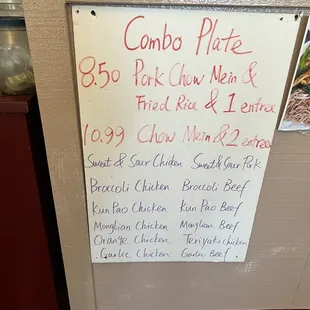 Combo Plate
8.50 Pork Chow Mein &
Fried Rice & 1 entree
10.99 Chow Mein & 2 entrees
Sweet & Sour Chicken Sweet & Sour Pork
Broccoli Chicken Broccoli Beef
Kun Pao Chicken Kun Pao Beef
Monglian Chicken Monglian Beef
Orange Chicken Teriyaki chicken
Garlic Chicken Garlic Beef